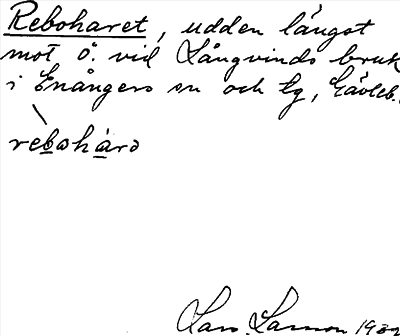 Reboharet, udden längst
mot ö. vid Långvinds bruk
i Enångers sn och tg, Gävleb.
rebohàra
Lars Larsson 1932